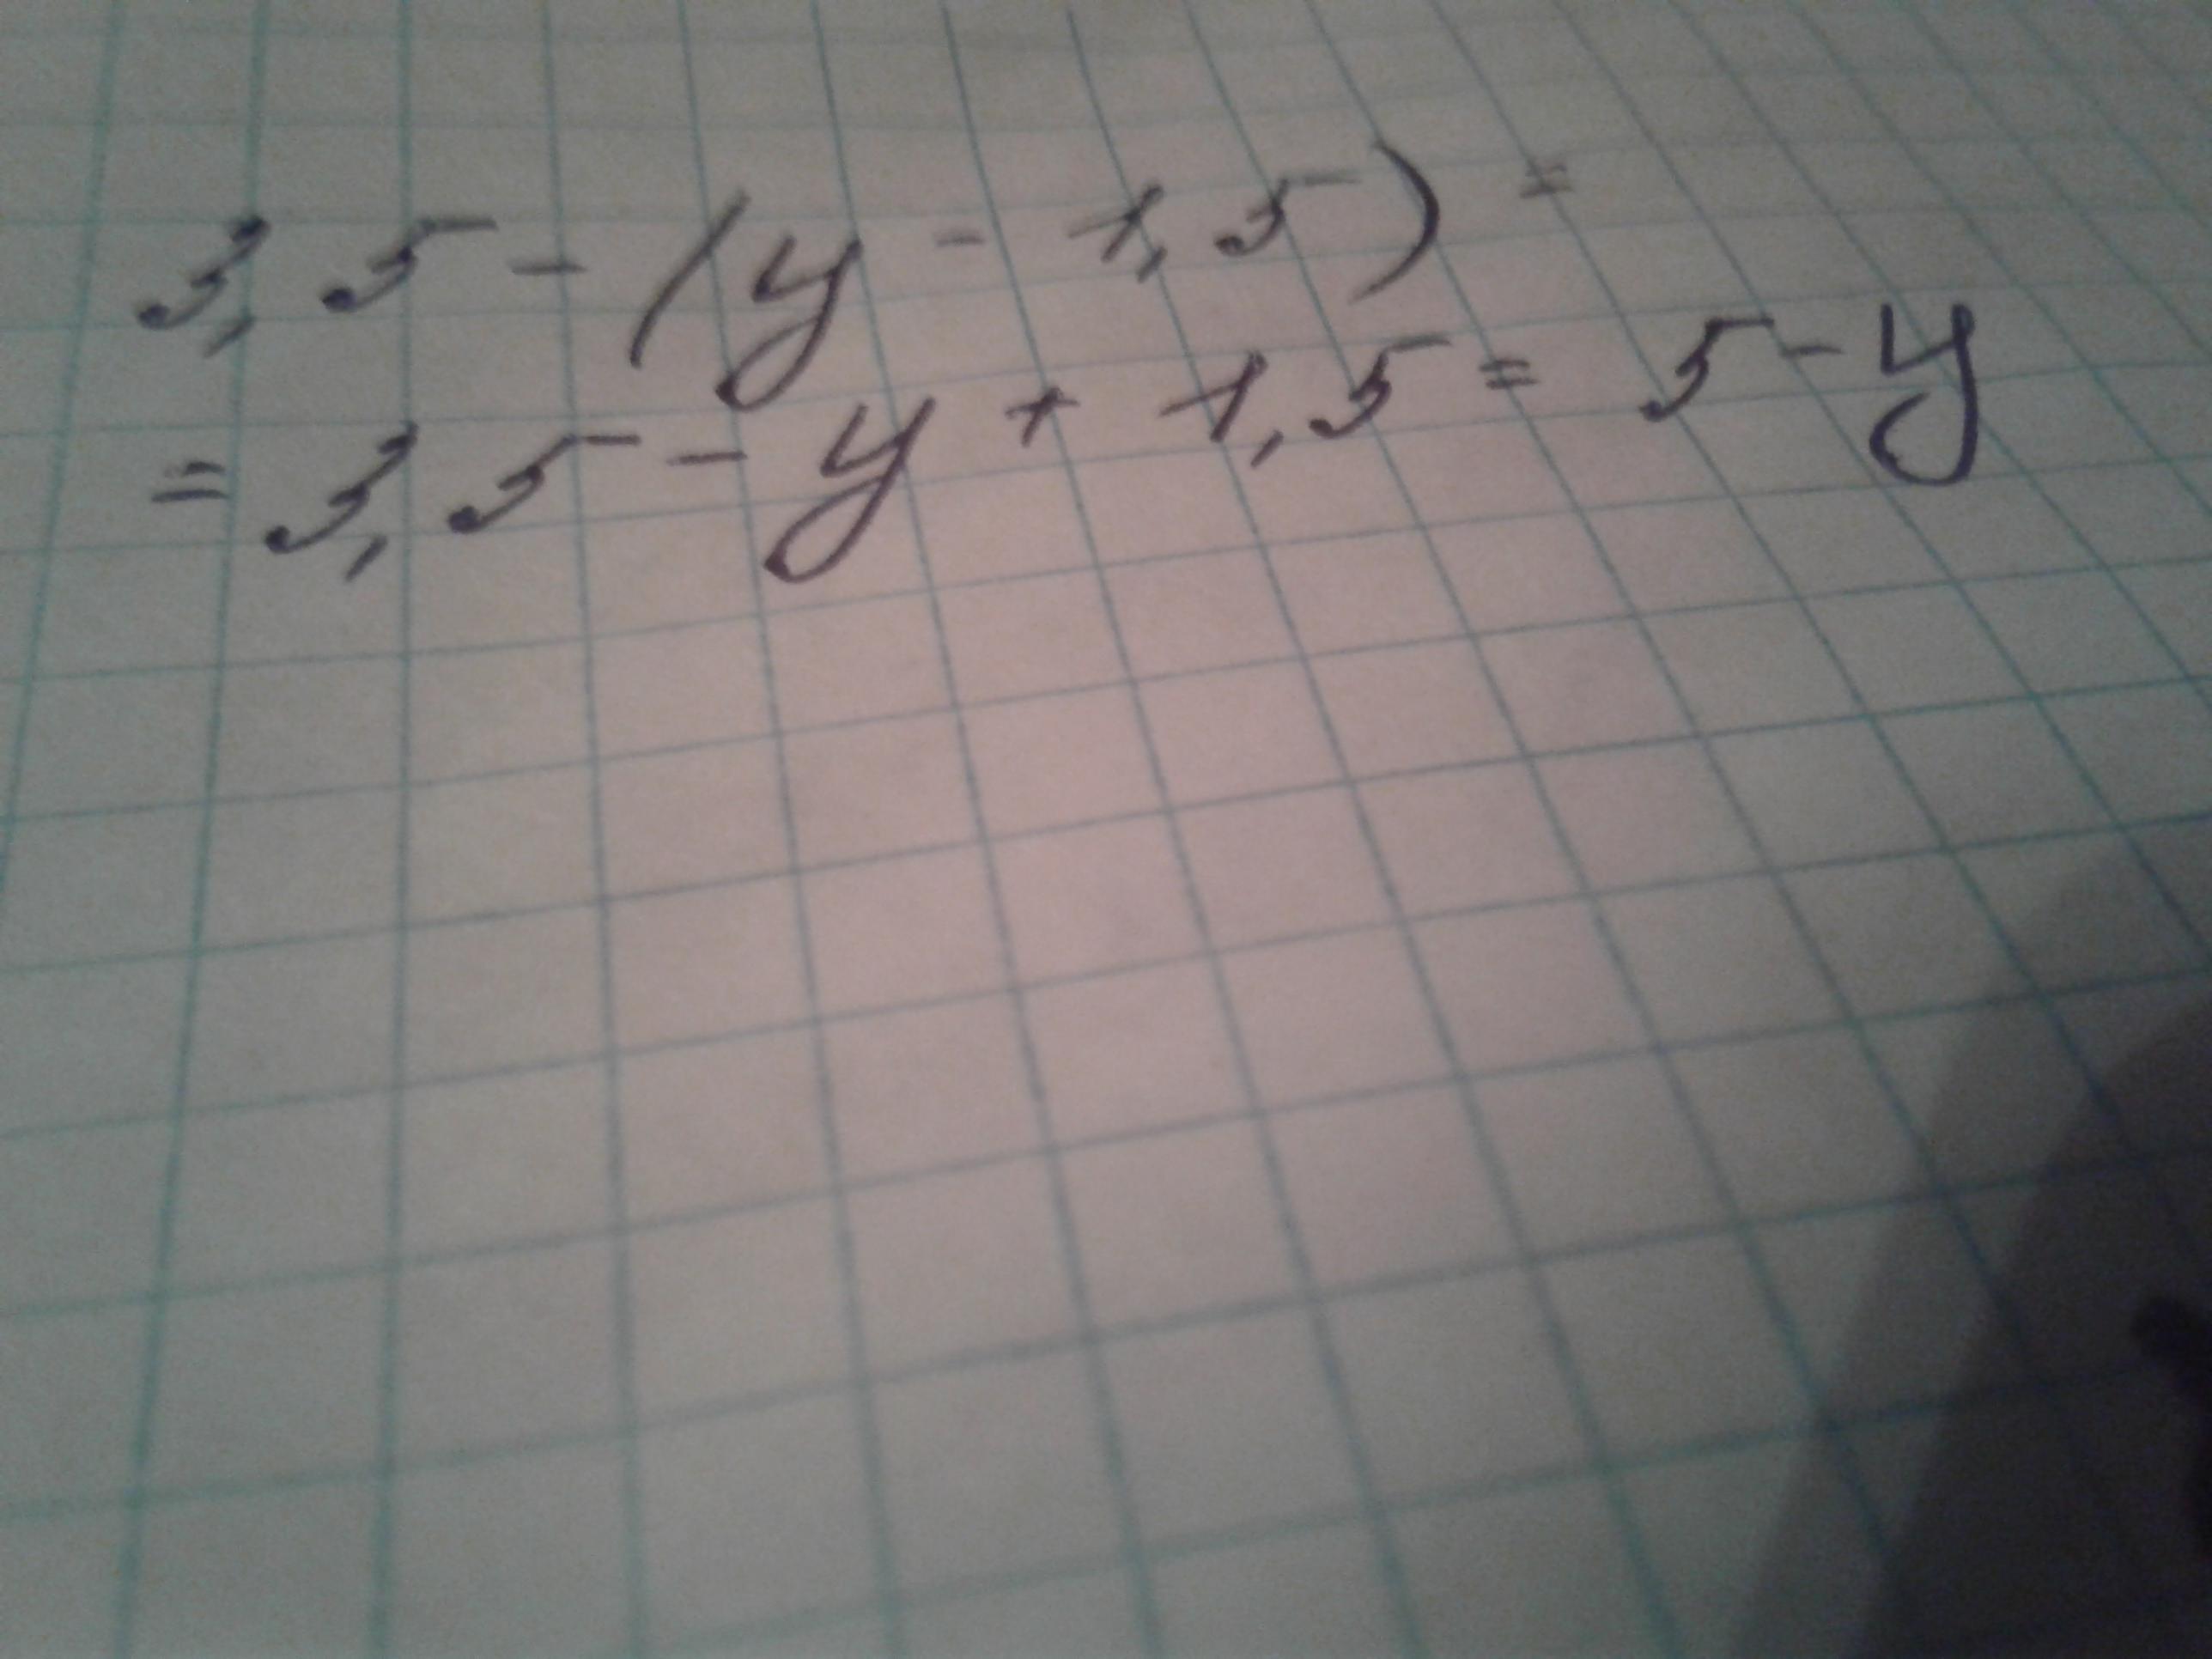 3,5 - (y - 1,5) =
= 3,5 - y + 1,5 = 5 - y